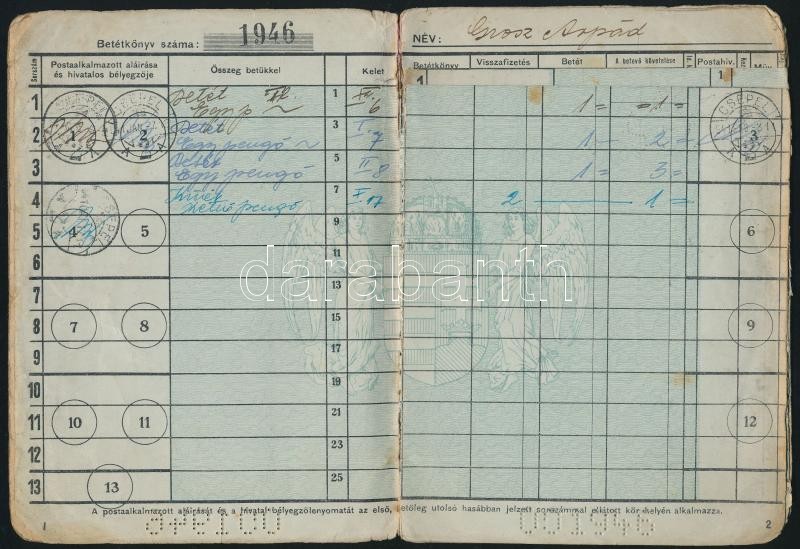 Betétkönyv száma: 1946
NÉV: Grosz Árpád
Sorszám Postaalkalmazott aláírása és hivatalos bélyegzője Összeg betükkel Kelet Betétkönyv Visszafizetés Betét A betevő követelése Postahiv.
1
1 Betét 1 XII. 6 1= =1=
2 Betét Egy pengő 3 I. 7 1 2=
3 Betét Egy pengő 5 II 8 1 3=
4 Kivét Kettő pengő 7 V 17 2 1=
5 9
6 11
7 13
8 15
9 17
10 19
11 21
12 23
13 25
CSEPEL
1 2 3
4 5 6
7 8 9
10 11 12
13
darabanth
A postaalkalmazott aláírását és a hivatal bélyegzőlenyomatát az első, illetőleg utolsó hasábban jelzett sorszámmal ellátott kör helyén alkalmazza.
1 2
001946